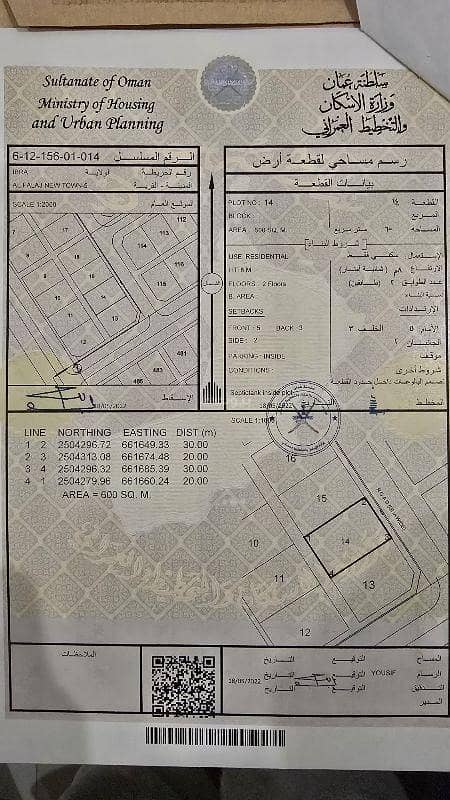 Sultanate of Oman
Ministry of Housing
and Urban Planning
سلطنة عمان
وزارة الإسكان
والتخطيط العمراني
6-12-156-01-014 الرقم المسلسل
IBRA الولاية رقم الخريطة
AL FALAJ NEW TOWN-5 المدينة - القرية
SCALE 1:2000 الموقع العام
112
7
114
113
10
15
11
14
116
115
12
13
482
481
486
الشمال
18/05/2022 الإسقاط
رسم مساحي لقطعة أرض
بيانات القطعة
PLOT NO: 14 ١٤ القطعة
BLOCK المربع
AREA : 600 SQ. M. ٦٠٠ متر مربع المساحة
[ شروط البناء ]
USE RESIDENTIAL سكني فقط الاستعمال
HT 8 M ٨م (ثمانية أمتار) الارتفاع
FLOORS : 2 Floors ٢ (طابقين) عدد الطوابق
B. AREA نسبة البناء
SETBACKS الارتدادات
FRONT : 5 BACK : 3 ٣ الخلف ٥ الأمام
SIDE : 2 ٢ الجانبان
PARKING : INSIDE موقف
CONDITIONS : شروط أخرى
Septictank inside plot
تصمم البالوعات داخل حدود القطعة
18/05/2022 التاريخ المخطط
SCALE 1:1000
LINE NORTHING EASTING DIST (m)
1 2 2504296.72 661649.33 30.00
2 3 2504313.08 661674.48 20.00
3 4 2504296.32 661685.39 30.00
4 1 2504279.96 661660.24 20.00
AREA = 600 SQ. M.
16
15
10
14
11
13
12
الملاحظات
التاريخ التوقيع المساح
18/05/2022 التاريخ التوقيع YOUSIF الرسام
التاريخ التوقيع التدقيق
المدير